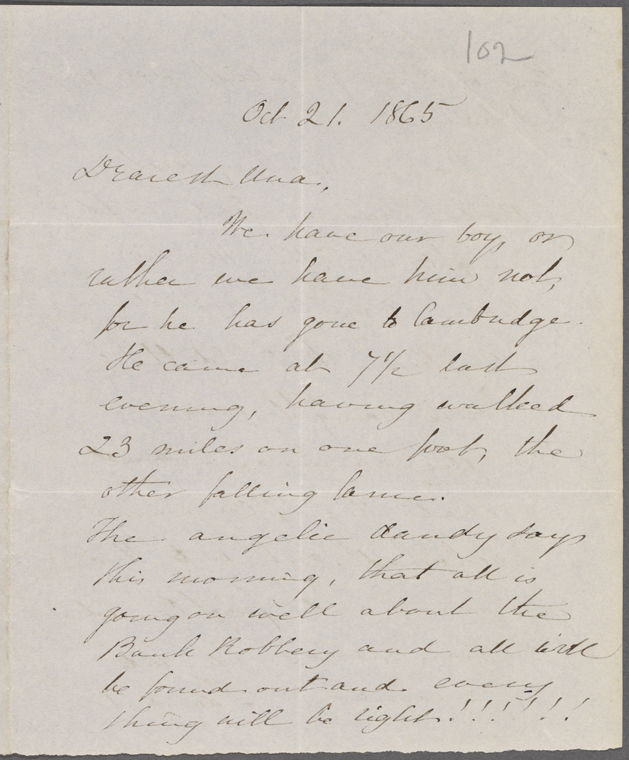 102
Oct 21. 1865
Dearest Una,
We have our boy, or
rather we have him not,
for he has gone to Cambridge.
He came at 7 1/2 last
evening, having walked
23 miles on one foot, the
other falling lame.
The angelic dandy says
this morning, that all is
going on well about the
Bank Robbery and all will
be found out and every
thing will be right!!!!!!